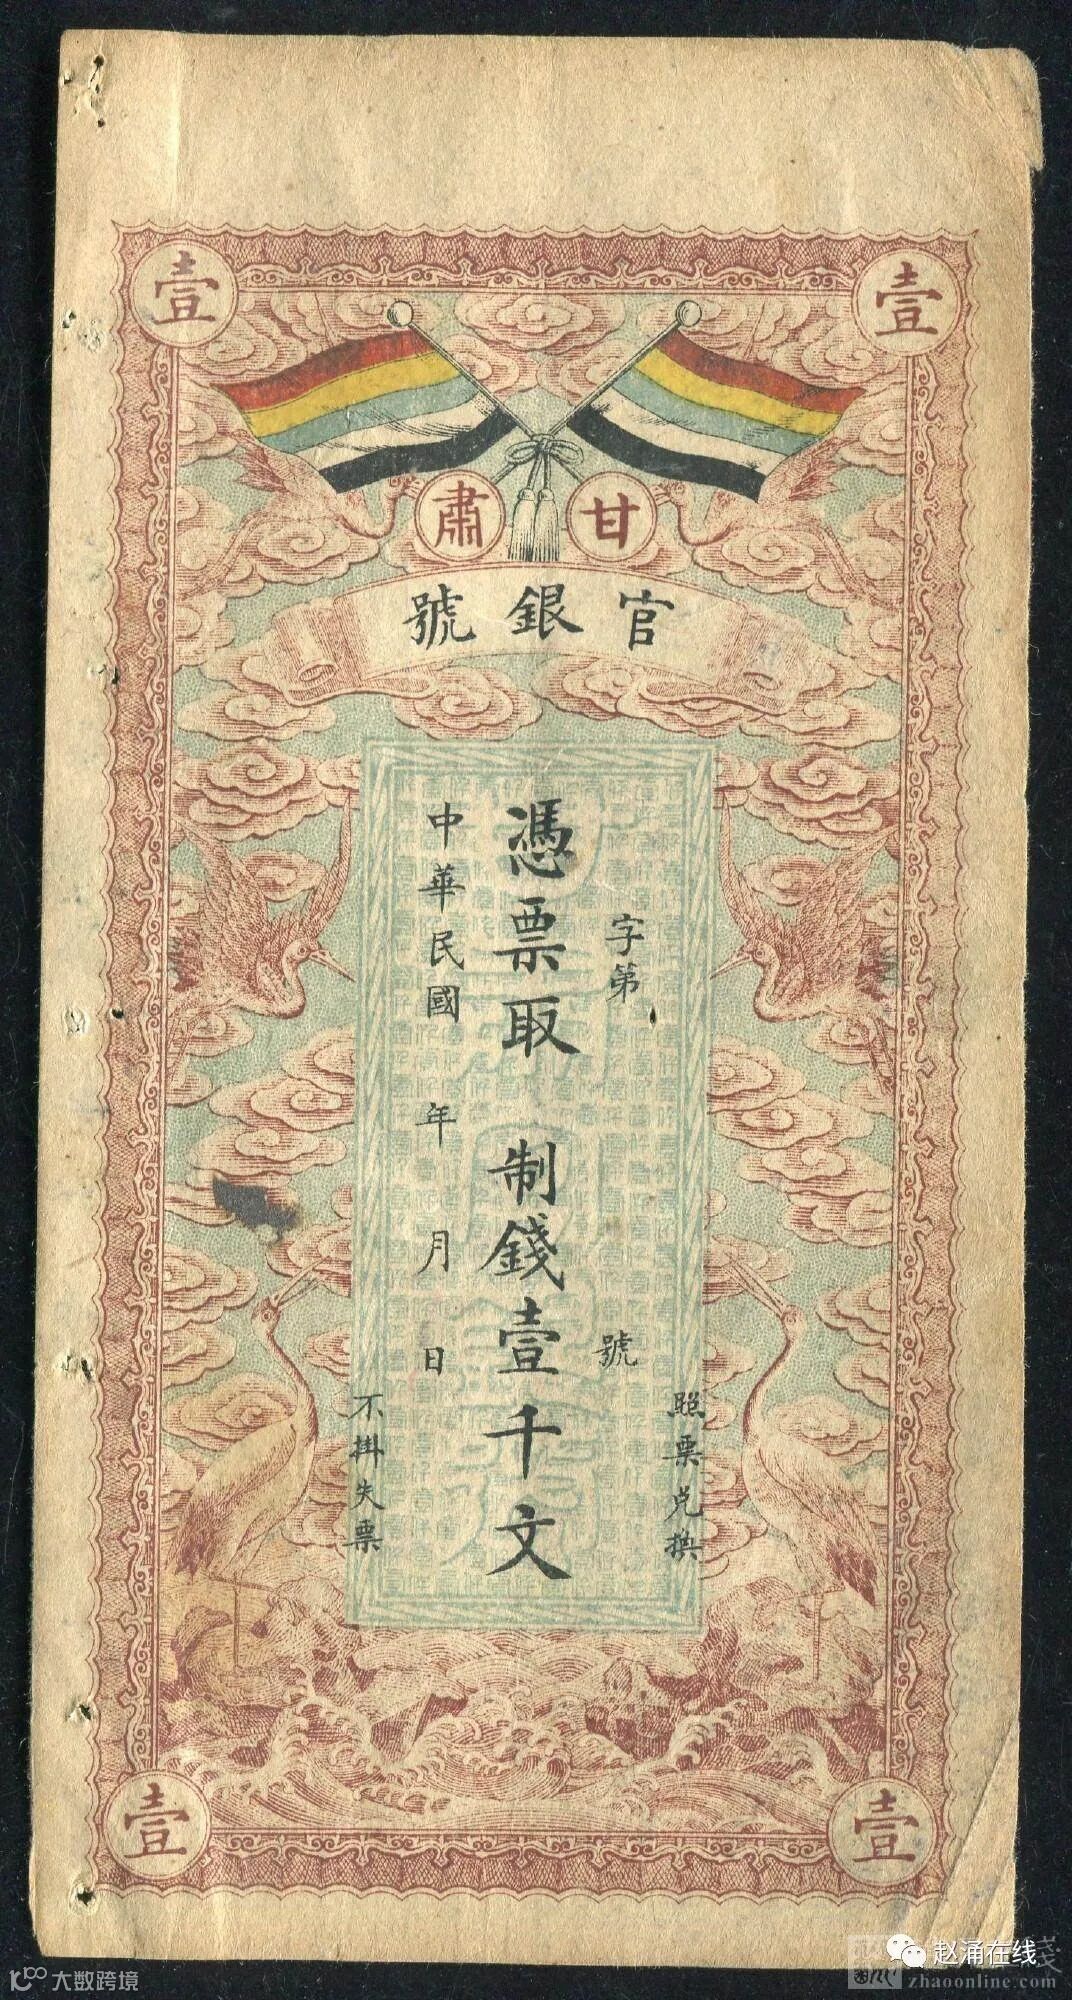 壹
壹
甘肅
官銀號
字第
號
憑票取
制錢壹千文
中華民國
年
月
日
照票兑換
不掛失票
壹
壹
赵涌在线
zhaoonline.com
大数跨境